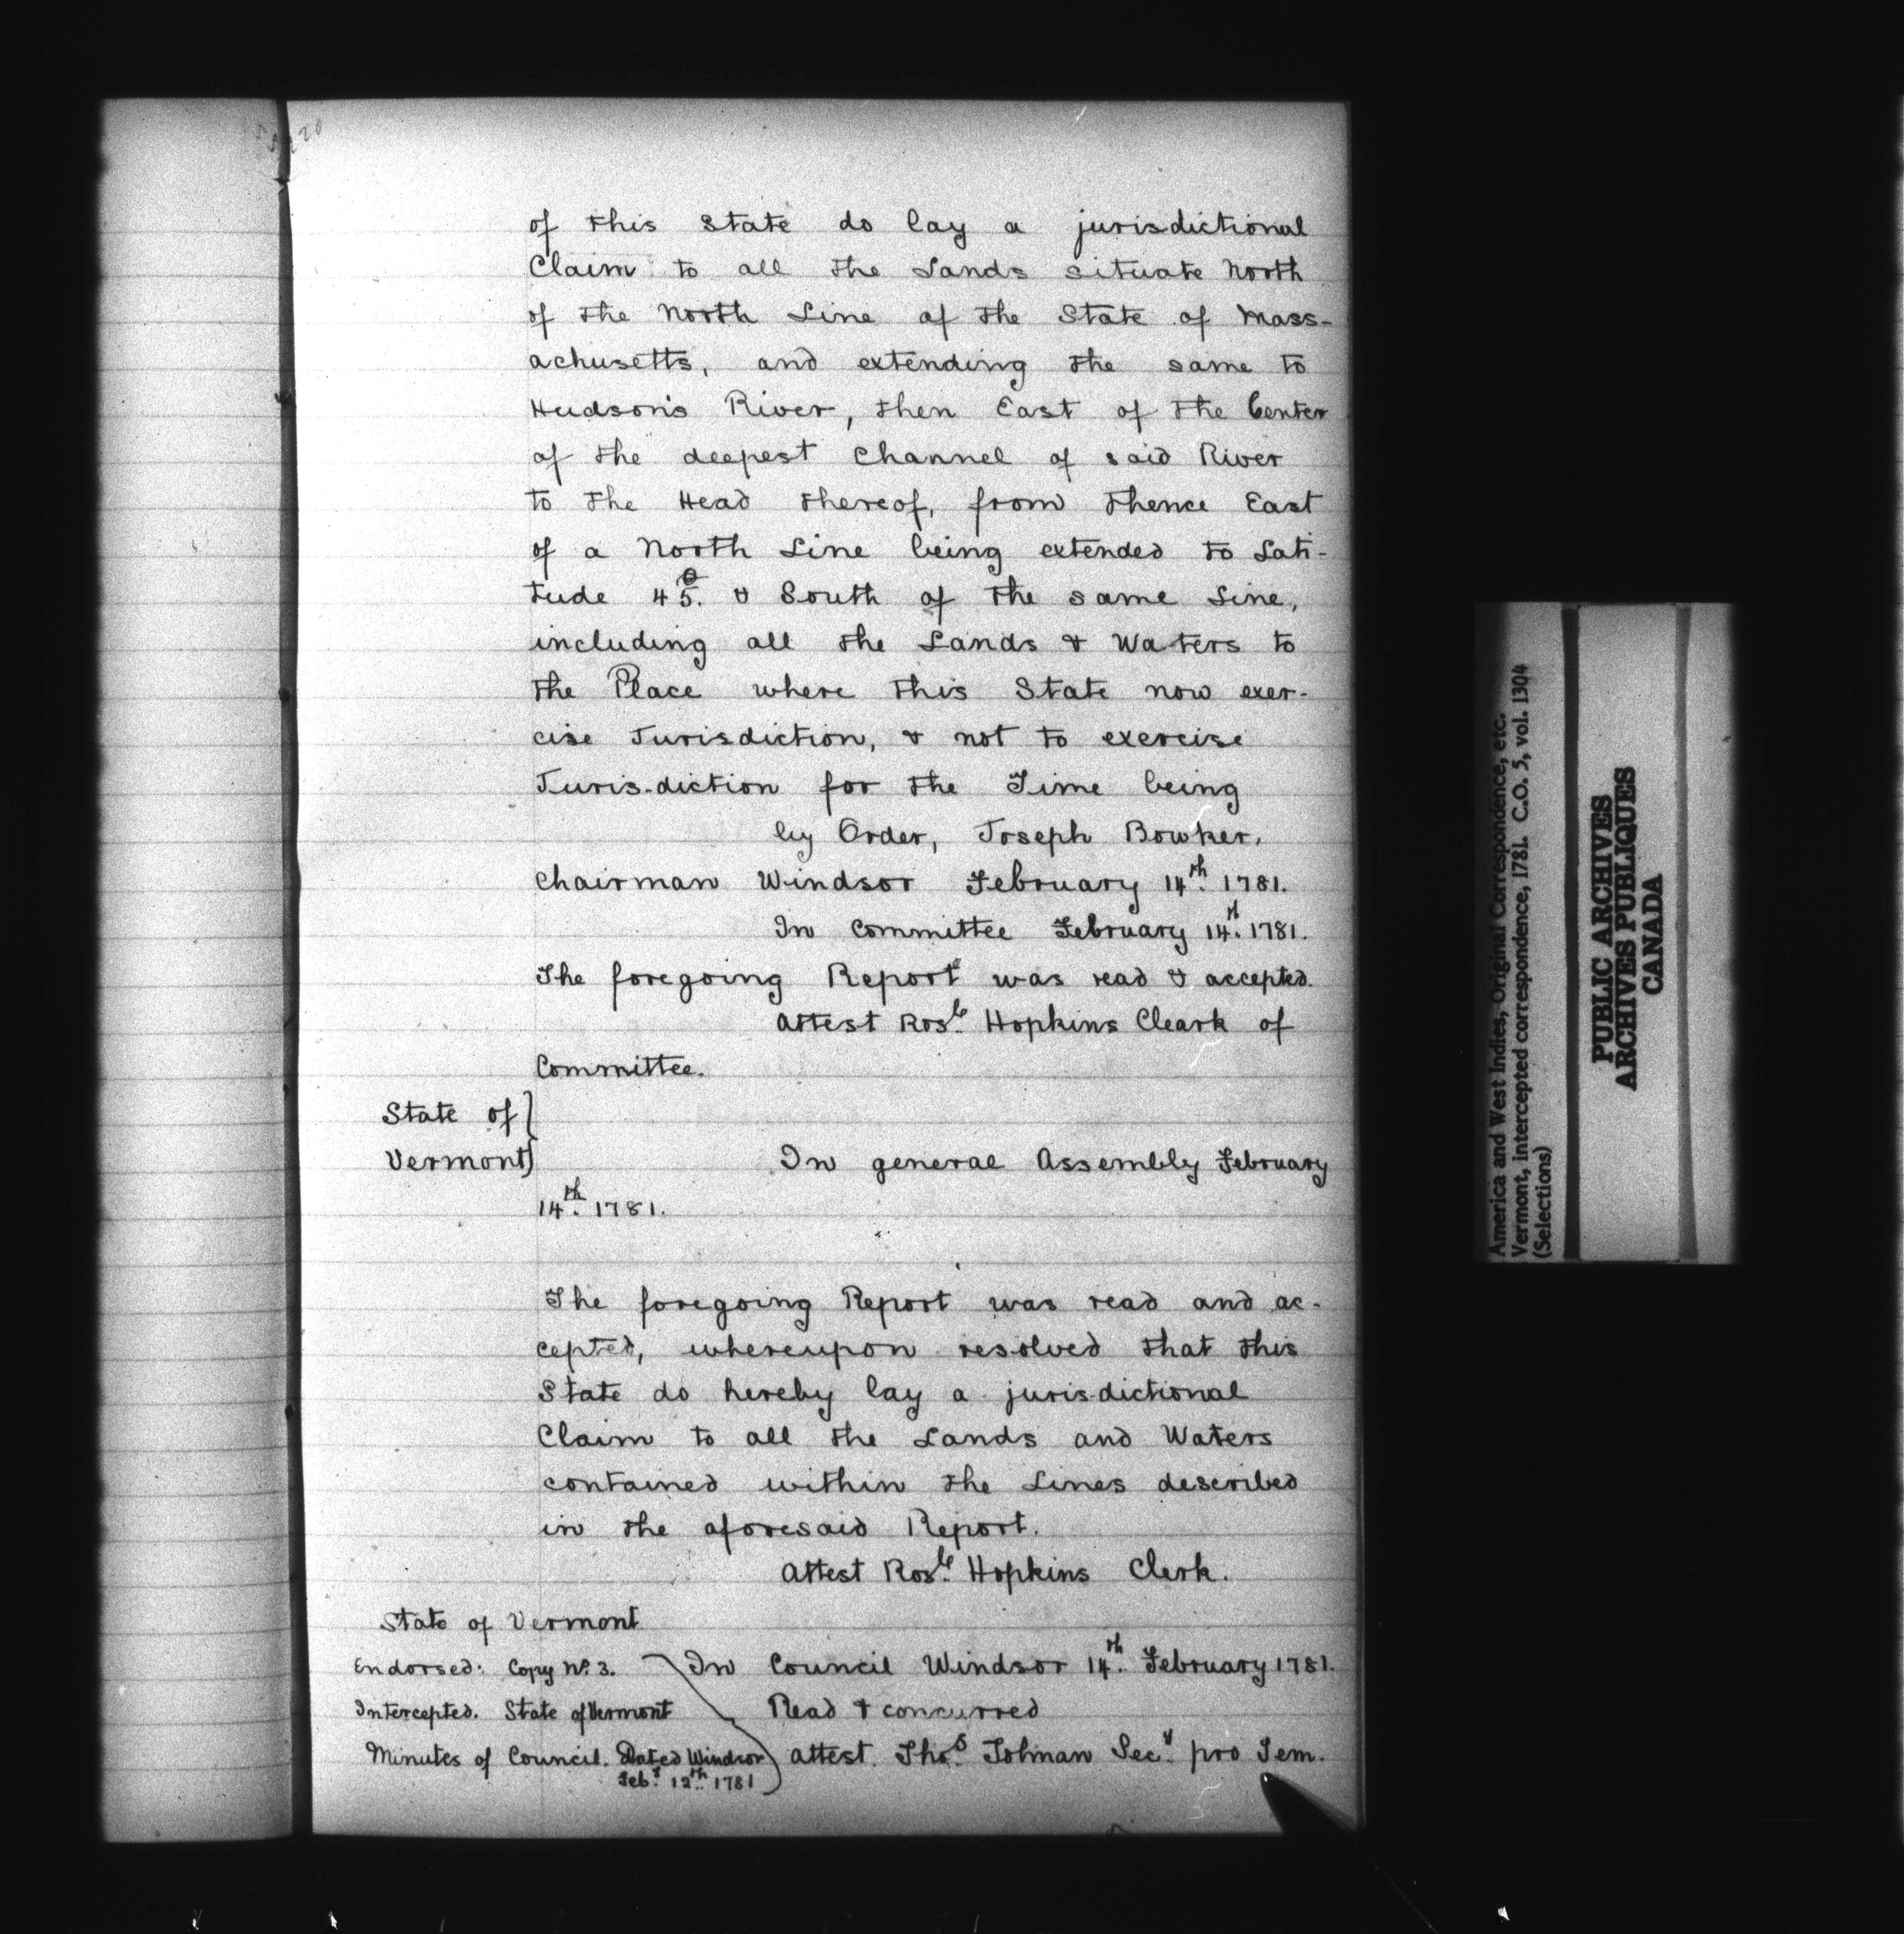 of this State do lay a jurisdictional
Claim to all the Lands situate North
of the North Line of the State of Mass-
achusetts, and extending the same to
Hudson's River, then East of the Center
of the deepest Channel of said River
to the Head thereof, from thence East
of a North Line being extended to Lati-
tude 45°. & South of the same Line,
including all the Lands & Waters to
the Place where this State now exer-
cise Jurisdiction, & not to exercise
Juris-diction for the Time being
by Order, Joseph Bowker,
Chairman Windsor February 14th. 1781.
In Committee February 14th. 1781.
The foregoing Report was read & accepted.
Attest Rosl. Hopkins Cleark of
Committee.
State of }
Vermont }
In general Assembly February
14th. 1781.
The foregoing Report was read and ac-
cepted, whereupon resolved that this
State do hereby lay a juris-dictional
Claim to all the Lands and Waters
contained within the Lines described
in the aforesaid Report.
Attest Rosl. Hopkins Clerk.
State of Vermont
In Council Windsor 14th. February 1781.
Read & concurred
Attest. Thos. Tolman Secy. pro Tem.
Endorsed: Copy No. 3.
Intercepted. State of Vermont
Minutes of Council. Dated Windsor
Feby. 12th. 1781
America and West Indies, Original Correspondence, etc.
Vermont, intercepted correspondence, 1781. C.O. 5, vol. 1304
(Selections)
PUBLIC ARCHIVES
ARCHIVES PUBLIQUES
CANADA